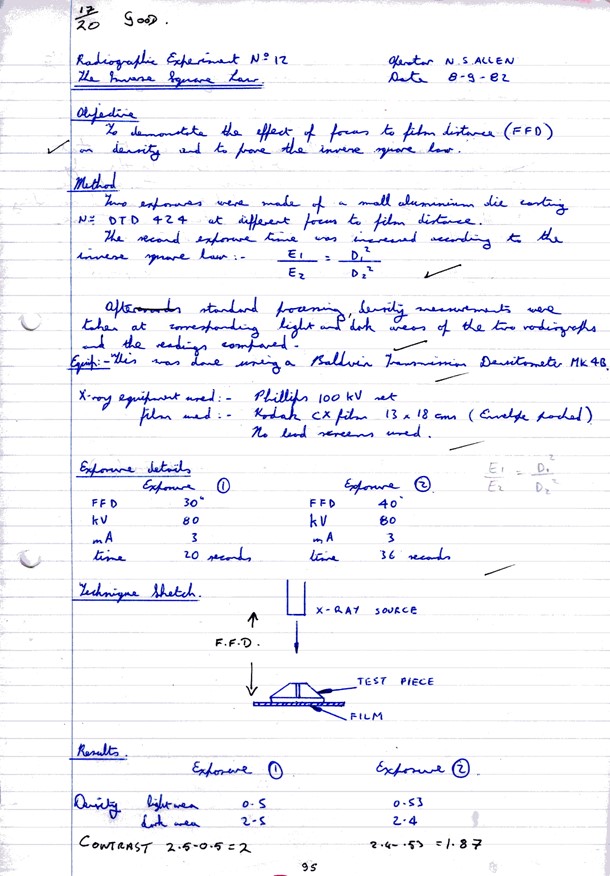 17/20 GOOD.
Radiographic Experiment No 12 Operator N.S. ALLEN
The Inverse Square Law. Date 8-9-82
Objective
To demonstate the effect of focus to film distance (FFD)
on density and to prove the inverse square law.
Method
Two exposures were made of a small aluminium die casting
No DTD 424 at different focus to film distance.
The second exposure time was increased according to the
inverse square law :- E1/E2 = D1²/D2²
After standard processing, density measurements were
taken at corresponding light and dark areas of the two radiographs
and the readings compared.
Equip:- This was done using a Baldwin Transmission Densitometer MK4B.
X-ray equipment used :- Phillips 100 kV set
film used :- Kodak CX film 13 x 18 cms (Envelope packed)
No lead screens used.
Exposure details E1/E2 = D1²/D2²
Exposure ① Exposure ②
FFD 30" FFD 40"
kV 80 kV 80
mA 3 mA 3
time 20 seconds time 36 seconds
Technique Sketch.
X-RAY SOURCE
F.F.D.
TEST PIECE
FILM
Results.
Exposure ① Exposure ②
Density light area 0.5 0.53
dark area 2.5 2.4
CONTRAST 2.5-0.5=2 2.4-.53 =1.87
95